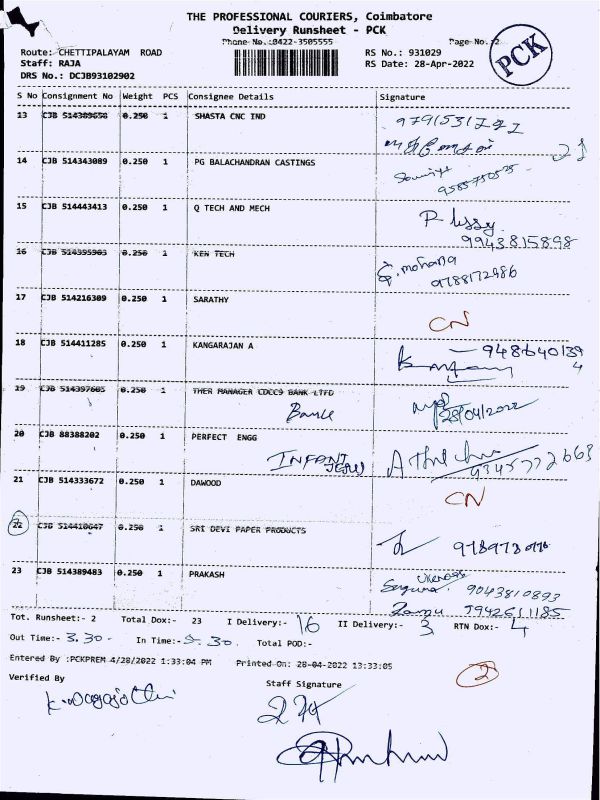 THE PROFESSIONAL COURIERS, Coimbatore
Delivery Runsheet - PCK
Phone No.:0422-3505555
Page No.:2
PCK
Route: CHETTIPALAYAM ROAD
RS No.: 931029
Staff: RAJA
RS Date: 28-Apr-2022
DRS No.: DCJB93102902
S No Consignment No Weight PCS Consignee Details Signature
13 CJB 514389658 0.250 1 SHASTA CNC IND
14 CJB 514343089 0.250 1 PG BALACHANDRAN CASTINGS
15 CJB 514443413 0.250 1 Q TECH AND MECH
9943815898
16 CJB 514395903 0.250 1 KEN TECH
mohana
9788172986
17 CJB 514216309 0.250 1 SARATHY
CN
18 CJB 514411285 0.250 1 KANGARAJAN A
9486401394
19 CJB 514397603 0.250 1 THER MANAGER CDCC9 BANK LTFD
Bank
28/04/2022
20 CJB 88388202 0.250 1 PERFECT ENGG
INFANT
9345772663
21 CJB 514333672 0.250 1 DAWOOD
CN
22 CJB 514410647 0.250 1 SRI DEVI PAPER PRODUCTS
23 CJB 514389483 0.250 1 PRAKASH
9043810893
9942611185
Tot. Runsheet:- 2 Total Dox:- 23 I Delivery:- 16 II Delivery:- 3 RTN Dox:- 4
Out Time:- 3.30 - In Time:- 5.30 Total POD:-
Entered By :PCKPREM 4/28/2022 1:33:04 PM Printed On: 28-04-2022 13:33:05
2
Verified By
Staff Signature